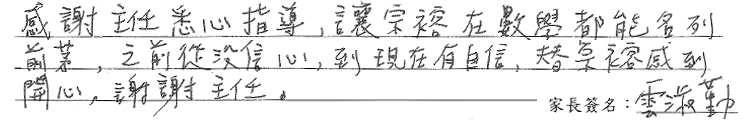 感謝主任悉心指導,讓宗裕在數學都能名列
前茅,之前從沒信心,到現在有自信,替宗裕感到
開心,謝謝主任。
家長簽名:雲淑勤